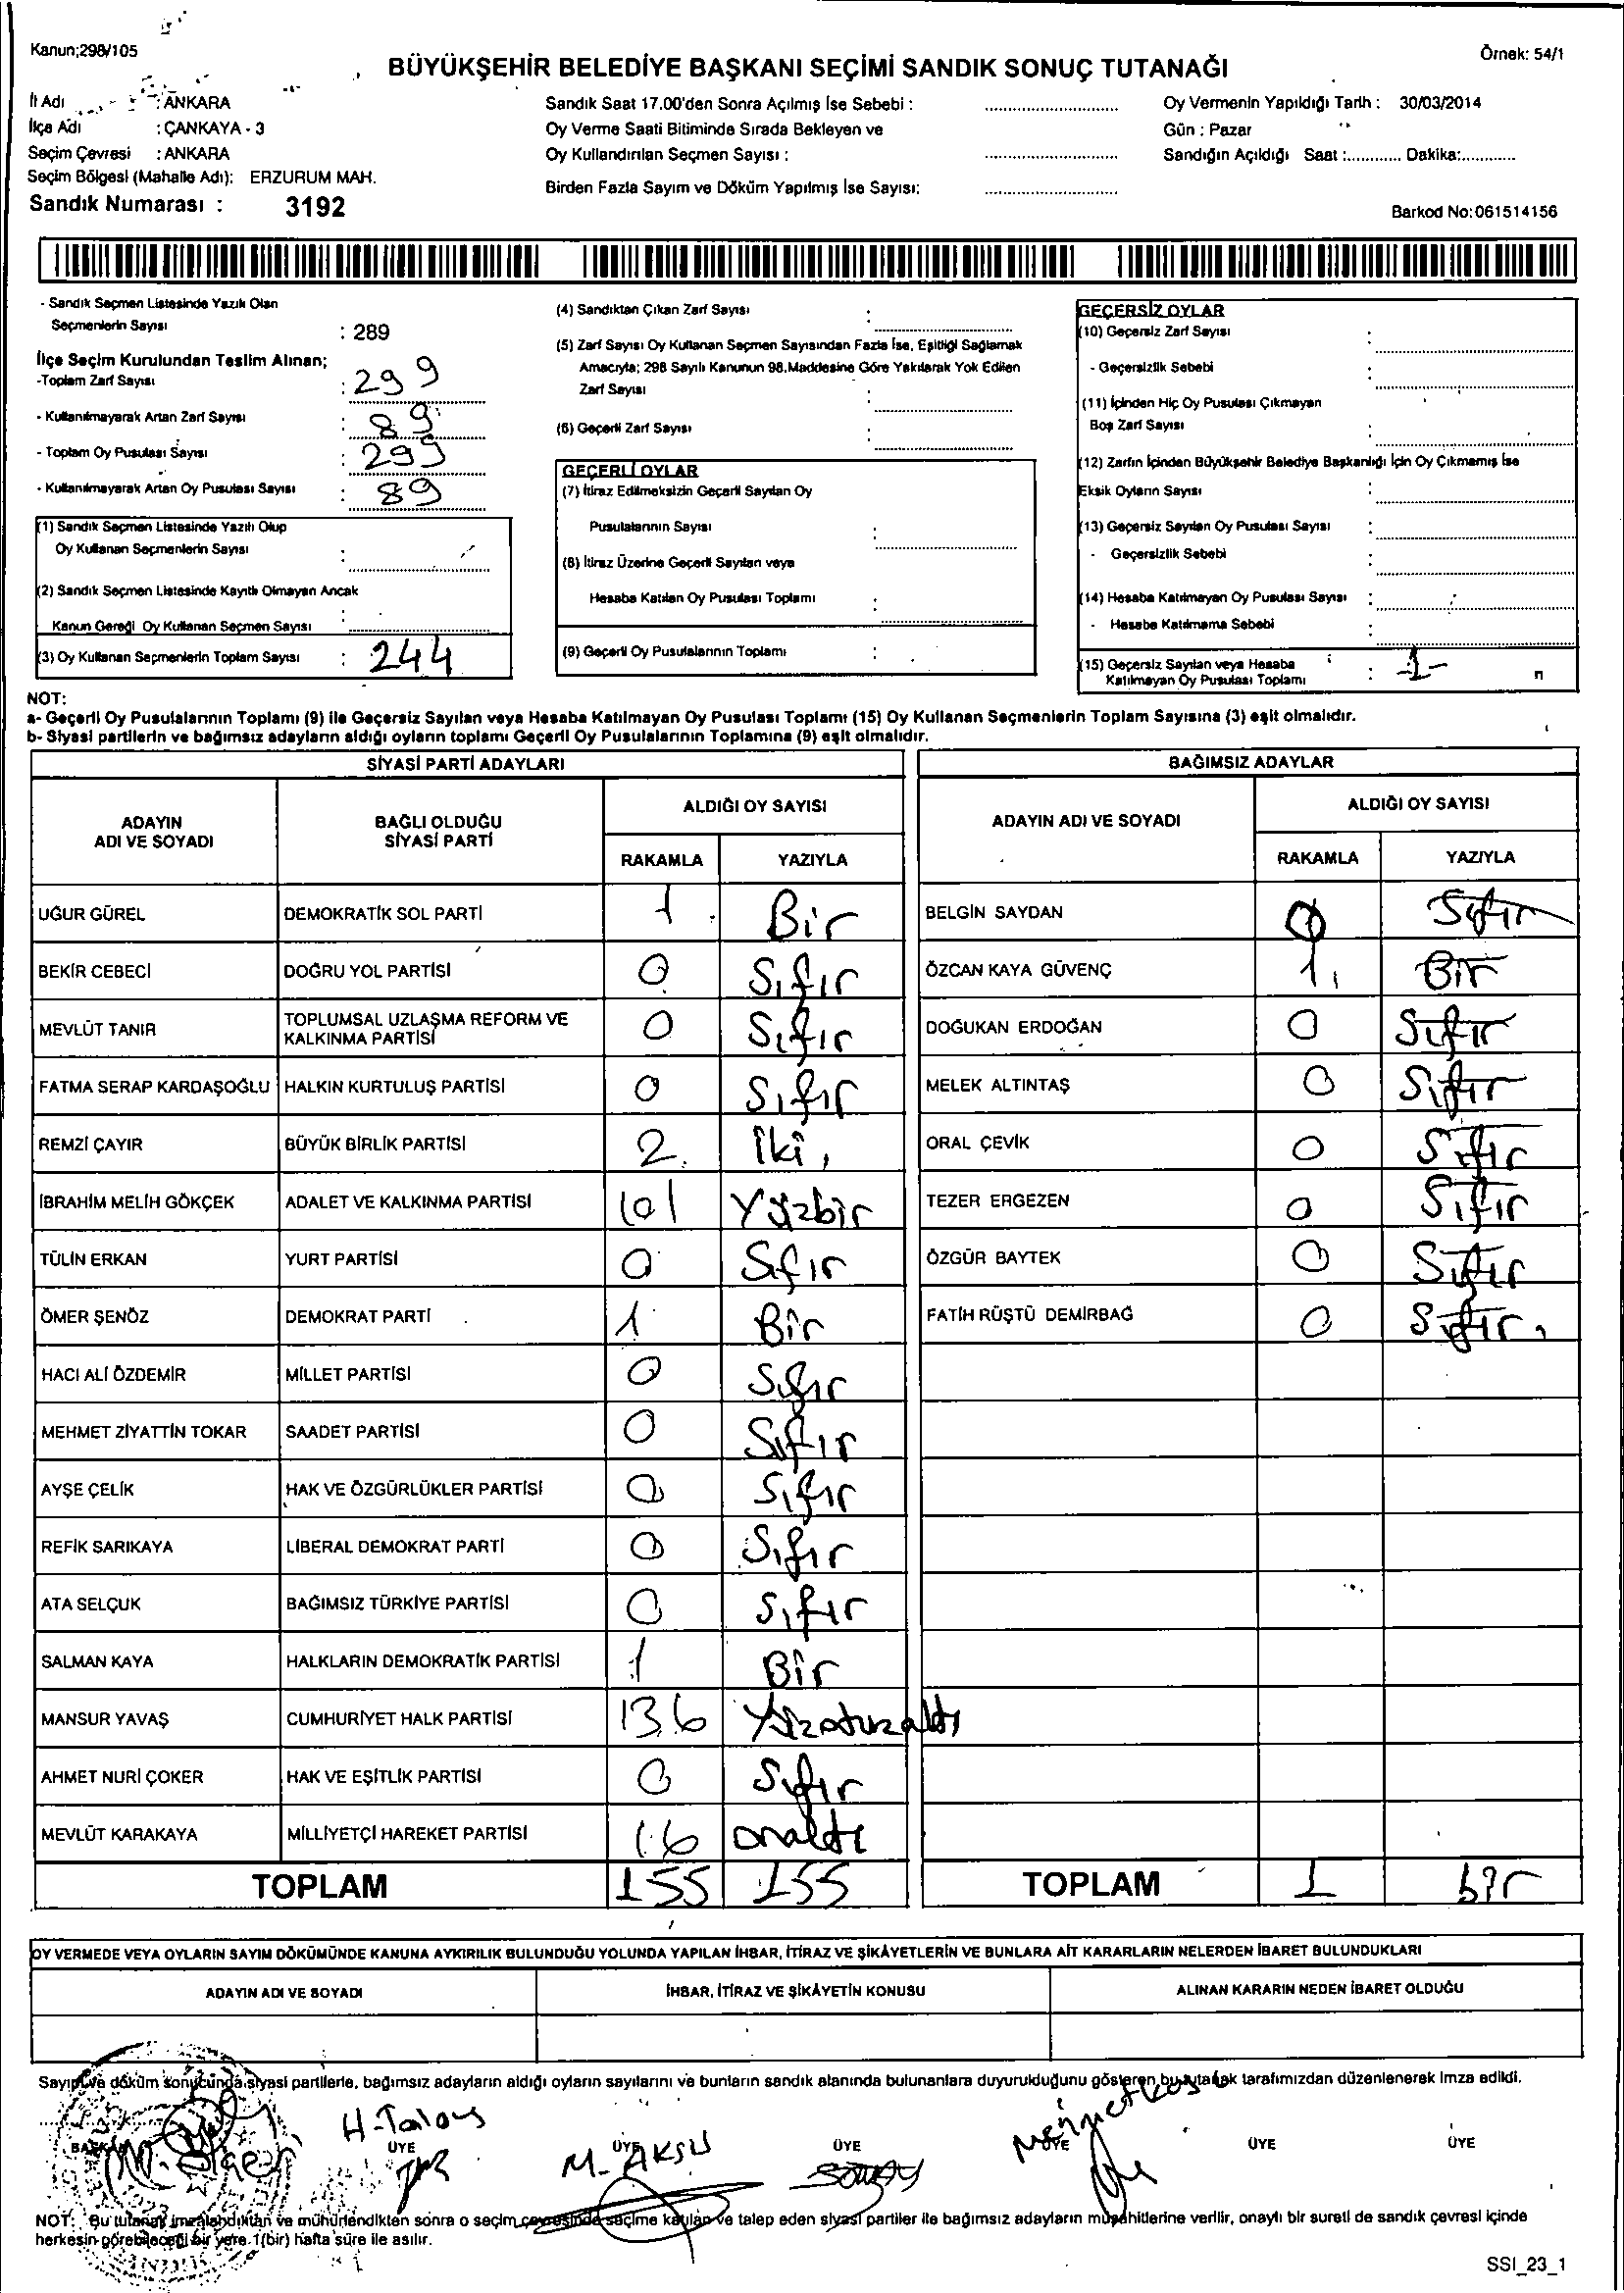 Kanun;298/105
Örnek: 54/1
BÜYÜKŞEHİR BELEDİYE BAŞKANI SEÇİMİ SANDIK SONUÇ TUTANAĞI
İl Adı : ANKARA
İlçe Adı : ÇANKAYA - 3
Seçim Çevresi : ANKARA
Seçim Bölgesi (Mahalle Adı): ERZURUM MAH.
Sandık Numarası : 3192
Sandık Saat 17.00'den Sonra Açılmış İse Sebebi :
Oy Verme Saati Bitiminde Sırada Bekleyen ve
Oy Kullandırılan Seçmen Sayısı :
Birden Fazla Sayım ve Döküm Yapılmış İse Sayısı:
Oy Vermenin Yapıldığı Tarih : 30/03/2014
Gün : Pazar
Sandığın Açıldığı Saat :............ Dakika:............
Barkod No:061514156
- Sandık Seçmen Listesinde Yazılı Olan
Seçmenlerin Sayısı : 289
İlçe Seçim Kurulundan Teslim Alınan;
-Toplam Zarf Sayısı : 299
- Kullanılmayarak Artan Zarf Sayısı : 89
- Toplam Oy Pusulası Sayısı : 299
- Kullanılmayarak Artan Oy Pusulası Sayısı : 89
(1) Sandık Seçmen Listesinde Yazılı Olup
Oy Kullanan Seçmenlerin Sayısı :
(2) Sandık Seçmen Listesinde Kayıtlı Olmayan Ancak
Kanun Gereği Oy Kullanan Seçmen Sayısı :
(3) Oy Kullanan Seçmenlerin Toplam Sayısı : 244
(4) Sandıktan Çıkan Zarf Sayısı :
(5) Zarf Sayısı Oy Kullanan Seçmen Sayısından Fazla İse, Eşitliği Sağlamak
Amacıyla; 298 Sayılı Kanunun 98.Maddesine Göre Yakılarak Yok Edilen
Zarf Sayısı :
(6) Geçerli Zarf Sayısı :
GEÇERLİ OYLAR
(7) İtiraz Edilmeksizin Geçerli Sayılan Oy
Pusulalarının Sayısı :
(8) İtiraz Üzerine Geçerli Sayılan veya
Hesaba Katılan Oy Pusulası Toplamı :
(9) Geçerli Oy Pusulalarının Toplamı :
GEÇERSİZ OYLAR
(10) Geçersiz Zarf Sayısı :
- Geçersizlik Sebebi :
(11) İçinden Hiç Oy Pusulası Çıkmayan
Boş Zarf Sayısı :
(12) Zarfın İçinden Büyükşehir Belediye Başkanlığı İçin Oy Çıkmamış İse
Eksik Oyların Sayısı :
(13) Geçersiz Sayılan Oy Pusulası Sayısı :
- Geçersizlik Sebebi :
(14) Hesaba Katılmayan Oy Pusulası Sayısı :
- Hesaba Katılmama Sebebi :
(15) Geçersiz Sayılan veya Hesaba
Katılmayan Oy Pusulası Toplamı : -1-
NOT:
a- Geçerli Oy Pusulalarının Toplamı (9) ile Geçersiz Sayılan veya Hesaba Katılmayan Oy Pusulası Toplamı (15) Oy Kullanan Seçmenlerin Toplam Sayısına (3) eşit olmalıdır.
b- Siyasi partilerin ve bağımsız adayların aldığı oyların toplamı Geçerli Oy Pusulalarının Toplamına (9) eşit olmalıdır.
SİYASİ PARTİ ADAYLARI
ADAYIN ADI VE SOYADI BAĞLI OLDUĞU SİYASİ PARTİ ALDIĞI OY SAYISI
RAKAMLA YAZIYLA
UĞUR GÜREL DEMOKRATİK SOL PARTİ 1 Bir
BEKİR CEBECİ DOĞRU YOL PARTİSİ 0 Sıfır
MEVLÜT TANIR TOPLUMSAL UZLAŞMA REFORM VE KALKINMA PARTİSİ 0 Sıfır
FATMA SERAP KARDAŞOĞLU HALKIN KURTULUŞ PARTİSİ 0 Sıfır
REMZİ ÇAYIR BÜYÜK BİRLİK PARTİSİ 2 İki
İBRAHİM MELİH GÖKÇEK ADALET VE KALKINMA PARTİSİ 101 Yüzbir
TÜLİN ERKAN YURT PARTİSİ 0 Sıfır
ÖMER ŞENÖZ DEMOKRAT PARTİ 1 Bir
HACI ALİ ÖZDEMİR MİLLET PARTİSİ 0 Sıfır
MEHMET ZİYATTİN TOKAR SAADET PARTİSİ 0 Sıfır
AYŞE ÇELİK HAK VE ÖZGÜRLÜKLER PARTİSİ 0 Sıfır
REFİK SARIKAYA LİBERAL DEMOKRAT PARTİ 0 Sıfır
ATA SELÇUK BAĞIMSIZ TÜRKİYE PARTİSİ 0 Sıfır
SALMAN KAYA HALKLARIN DEMOKRATİK PARTİSİ 1 Bir
MANSUR YAVAŞ CUMHURİYET HALK PARTİSİ 136 Yüzotuzaltı
AHMET NURİ ÇOKER HAK VE EŞİTLİK PARTİSİ 0 Sıfır
MEVLÜT KARAKAYA MİLLİYETÇİ HAREKET PARTİSİ 16 onaltı
TOPLAM 155 155
BAĞIMSIZ ADAYLAR
ADAYIN ADI VE SOYADI ALDIĞI OY SAYISI
RAKAMLA YAZIYLA
BELGİN SAYDAN 0 Sıfır
ÖZCAN KAYA GÜVENÇ 1 Bir
DOĞUKAN ERDOĞAN 0 Sıfır
MELEK ALTINTAŞ 0 Sıfır
ORAL ÇEVİK 0 Sıfır
TEZER ERGEZEN 0 Sıfır
ÖZGÜR BAYTEK 0 Sıfır
FATİH RÜŞTÜ DEMİRBAĞ 0 Sıfır
TOPLAM 1 bir
OY VERMEDE VEYA OYLARIN SAYIM DÖKÜMÜNDE KANUNA AYKIRILIK BULUNDUĞU YOLUNDA YAPILAN İHBAR, İTİRAZ VE ŞİKÂYETLERİN VE BUNLARA AİT KARARLARIN NELERDEN İBARET BULUNDUKLARI
ADAYIN ADI VE SOYADI İHBAR, İTİRAZ VE ŞİKÂYETİN KONUSU ALINAN KARARIN NEDEN İBARET OLDUĞU
Sayım ve döküm sonucunda siyasi partilerle, bağımsız adayların aldığı oyların sayılarını ve bunların sandık alanında bulunanlara duyurulduğunu gösteren bu tutanak tarafımızdan düzenlenerek imza edildi.
BAŞKAN ÜYE ÜYE ÜYE ÜYE ÜYE ÜYE
M. AKSU
NOT: Bu tutanak imzalandıktan ve mühürlendikten sonra o seçim çevresinde seçime katılan ve talep eden siyasi partiler ile bağımsız adayların müşahitlerine verilir, onaylı bir sureti de sandık çevresi içinde
herkesin görebileceği bir yere 1(bir) hafta süre ile asılır.
SSI_23_1